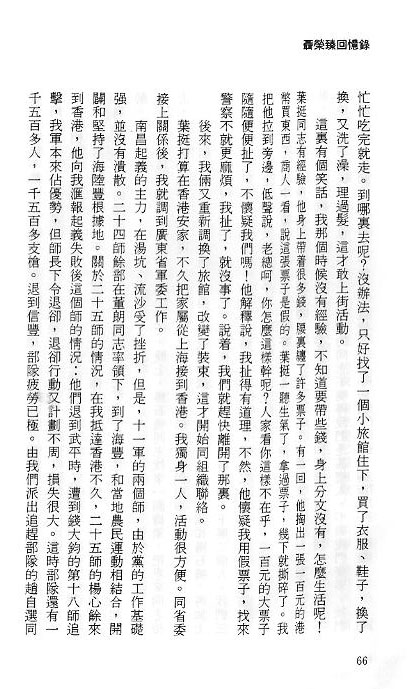 聶榮臻回憶錄
忙忙吃完就走。到哪裏去呢？沒辦法，只好找了一個小旅館住下，買了衣服、鞋子，換了
換，又洗了澡，理過髮，這才敢上街活動。
這裏有個笑話，我那個時候沒有經驗，不知道要帶些錢，身上分文沒有，怎麼生活呢！
葉挺同志有經驗，他身上帶着很多錢，腰裏纏了許多票子。有一回，他掏出一張一百元的港
幣買東西，商人一看，說這張票子是假的。葉挺一聽生氣了，拿過票子，幾下就撕碎了。我
把他拉到旁邊，低聲說，老總呵，你怎麼這樣幹呢？人家看你這樣不在乎，一百元的大票子
隨隨便便扯了，不懷疑我們嗎，他解釋說，我扯得有道理，不然，他懷疑我用假票子，找來
警察不就更麻煩，我扯了，就沒事了。說着，我們就趕快離開了那裏。
後來，我倆又重新調換了旅館，改變了裝束，這才開始同組織聯絡。
葉挺打算在香港安家，不久把家屬從上海接到香港。我獨身一人，活動很方便。同省委
接上關係後，我就調到廣東省軍委工作。
南昌起義的主力，在湯坑、流沙受了挫折，但是，十一軍的兩個師，由於黨的工作基礎
強，並沒有潰散。二十四師餘部在董朗同志率領下，到了海豐，和當地農民運動相結合，開
闢和堅持了海陸豐根據地。關於二十五師的情況，在我抵達香港不久，二十五師的楊心畬來
到香港，他向我滙報起義失敗後這個師的情況：他們退到武平時，遭到錢大鈞的第十八師追
擊，我軍本來佔優勢，但師長下令退卻，退卻行動又計劃不周，損失很大。這時部隊還有一
千五百多人，一千五百多支槍。退到信豐，部隊疲勞已極。由我們派出追趕部隊的趙自選同
66